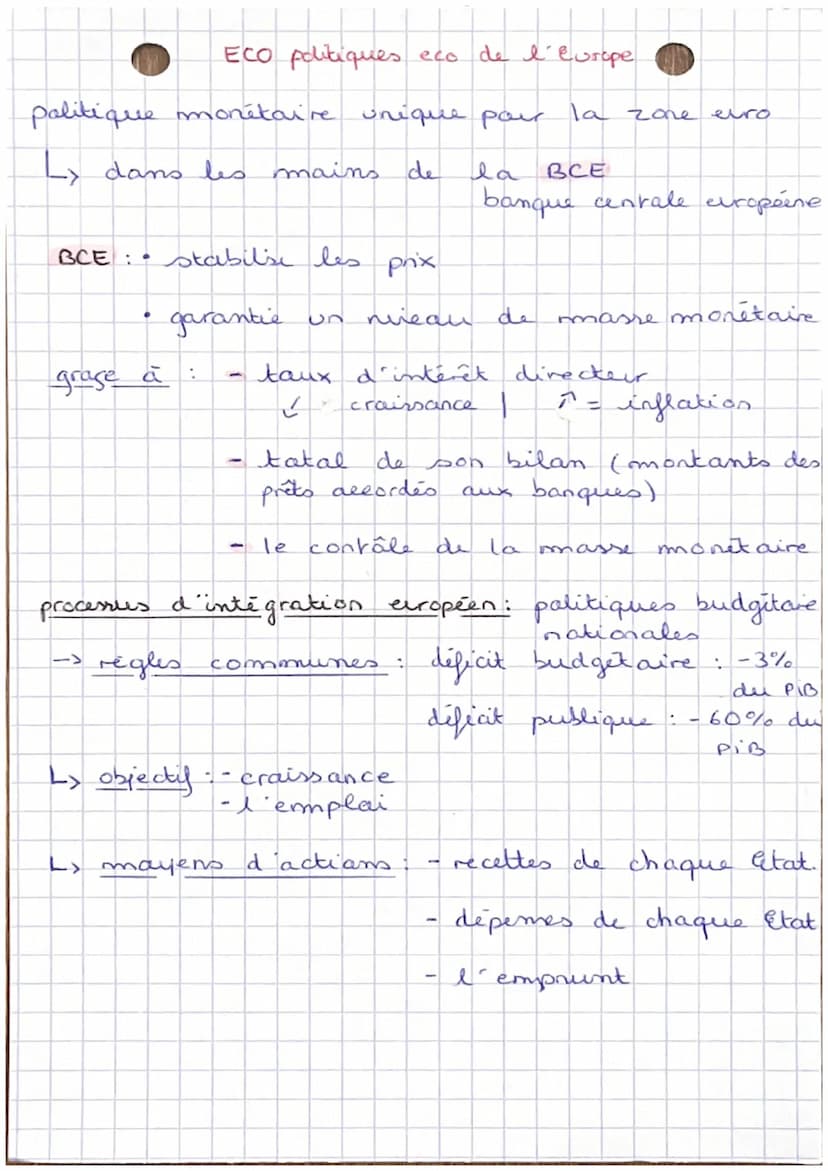 ECO politiques eco de l'Europe
politique monétaire unique pour la zone euro
↳ dans les mains de la BCE
banque centrale européene
BCE : • stabilise les prix
• garantie un niveau de masse monétaire
graçe à : - taux d'intérêt directeur
↙ croissance | ↗ = inflation
- total de son bilan (montants des
prêts accordés aux banques)
- le contrôle de la masse monétaire
processus d'intégration européen : politiques budgétaire
nationales
→ règles communes : déficit budgétaire : -3%
du PIB
déficit publique : - 60% du
PiB
↳ objectif : - croissance
- l'emploi
↳ moyens d'actions : - recettes de chaque Etat.
- dépenses de chaque Etat
- l'emprunt